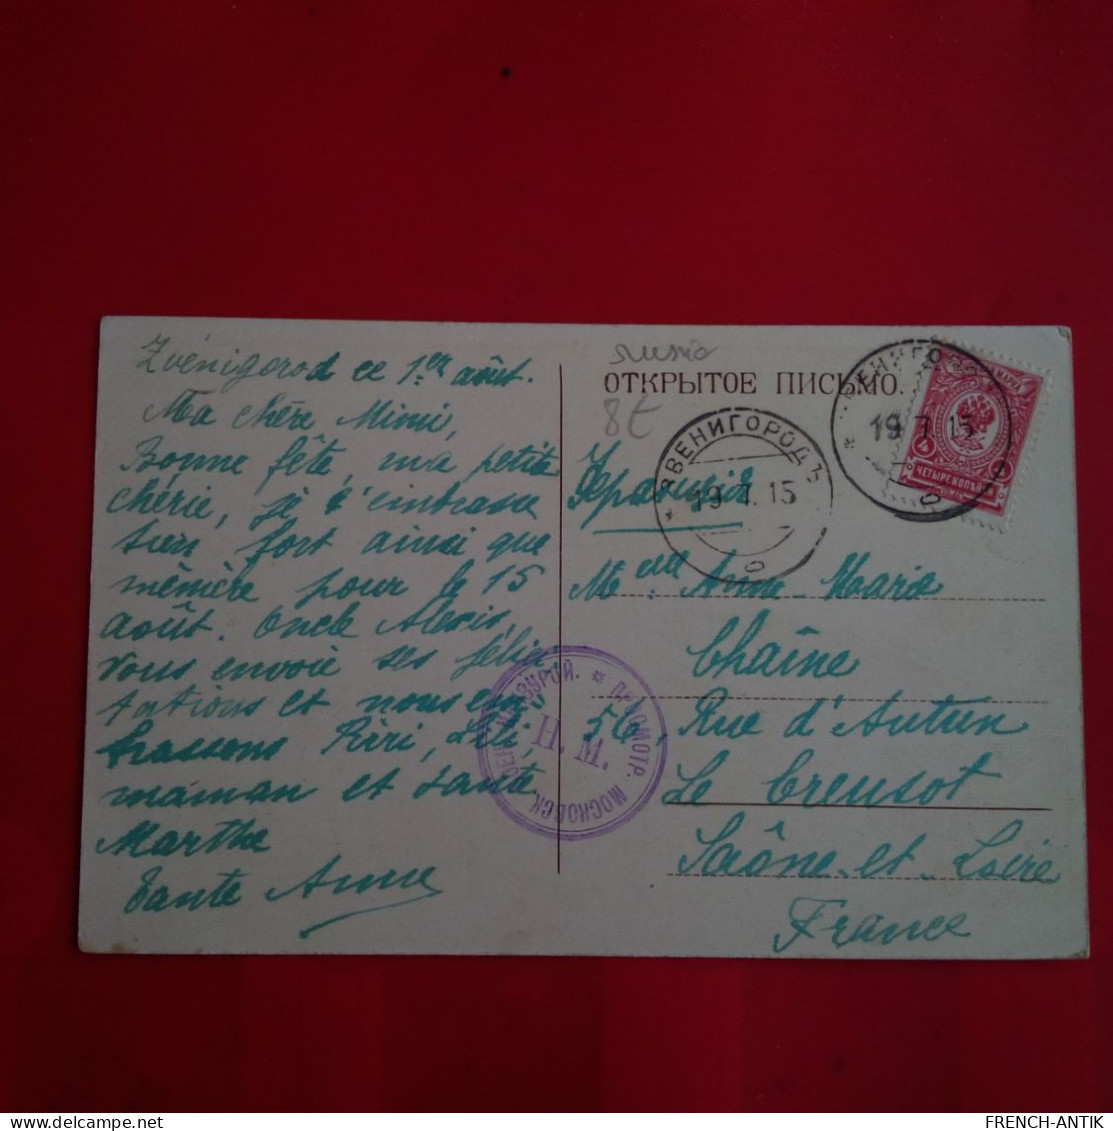 Zvénigorod ce 1er août.
Ma chère Mimi,
Bonne fête, ma petite
chérie, je t'embrasse
bien fort ainsi que
mémère pour le 15
août. Oncle Alexis,
vous envoie ses félici-
tations et nous em-
brassons Riri, Lili,
maman et tante
Marthe
Tante Anne
russia
ОТКРЫТОЕ ПИСЬМО.
8€
ЗВЕНИГОРОДЪ
19 7. 15
ЗВЕНИГОРОДЪ
19 7 15
МАРКА
4
ЧЕТЫРЕ КОП.
Франція
Melle Anne-Marie
Chaîne
56, Rue d'Autun
Le Creusot
Saône-et-Loire
France
ПРОСМОТР. МОСКОВСК. ВОЕН. ЦЕНЗУРОЙ.
Н. М.
FRENCH-ANTIK